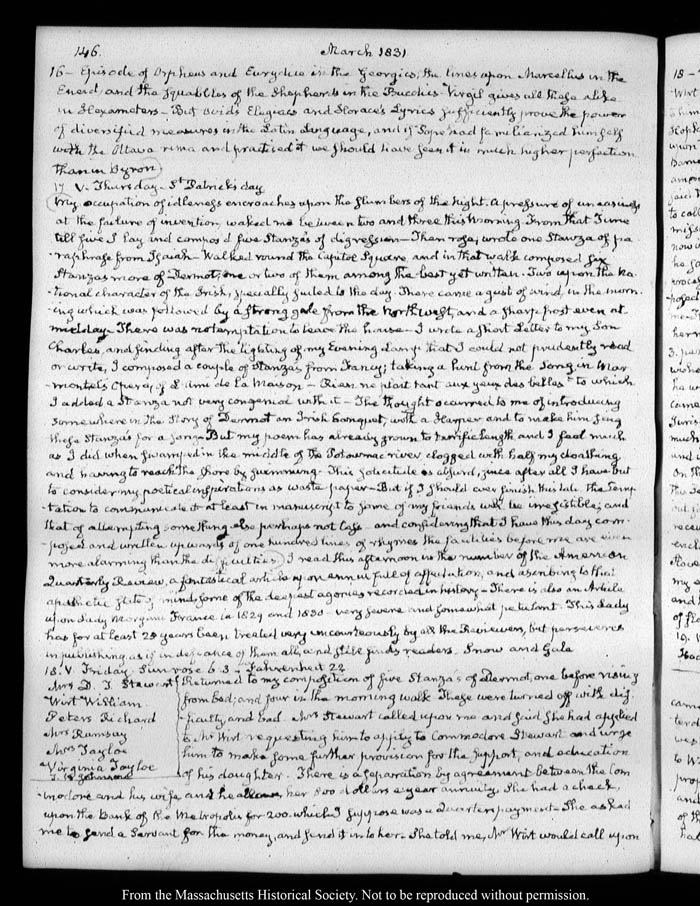 146. March 1831
16 – Episode of Orpheus and Eurydice in the Georgics, the lines upon Marcellus in the
Eneid, and the squabbles of the Shepherds in the Bucolics – Virgil gives all these alike
in Hexameters – But Ovid's Elegiacs and Horace's Lyrics sufficiently prove the power
of diversified measures in the Latin Language, and if Pope had familiarized himself
with the Ottava rima and practised it we should have seen it in much higher perfection
than in Byron
17. V. Thursday – St Patrick's day
My occupation of idleness encroaches upon the slumbers of the Night. A pressure of uneasiness
at the failure of invention, waked me between two and three this Morning. From that Time
till five I lay and composed five Stanzas of digression – Then rose, wrote one Stanza of pa
-raphrase from Isaiah – Walked round the Capitol Square, and in that walk composed six
Stanzas more of Dermot, one or two of them among the best yet written – Two upon the na
-tional character of the Irish, specially suited to the day. There came a gust of wind in the morn
-ing which was followed by a strong gale from the Northwest, and a sharp frost even at
midday – There was no temptation to leave the house – I wrote a short Letter to my Son
Charles, and finding after the lighting of my Evening Lamp that I could not prudently read
or write, I composed a couple of Stanzas from Fancy; taking a hint from the Song in Mar
-montel's Opera, of L'ami de la Maison – Rien ne plait tant aux yeux des belles" to which
I added a Stanza not very congenial with it – The thought occurred to me of introducing
somewhere in the Story of Dermot an Irish banquet, with a Harper and to make him sing
these Stanza's for a song – But my poem has already grown to terrific length and I feel much
as I did when swamped in the middle of the Potowmac river clogged with half my cloathing
and having to reach the shore by swimming – This solicitude is absurd, since after all I have but
to consider my poetical inspirations as waste paper – But if I should ever finish this tale the Temp
-tation to communicate it at least in manuscript to some of my friends will be irresistible; and
that of attempting something else perhaps not less – and considering that I have this day com
-posed and written upwards of one hundred lines of rhymes the facilities before me are even
more alarming than the difficulties – I read this afternoon in the number of the American
Quarterly Review, a fantastical article upon ennui full of affectation, and ascribing to that
apathetic state of mind, some of the deepest agonies recorded in history – There is also an Article
upon Lady Morgan's France in 1829 and 1830 – very severe and somewhat petulant. This Lady
has for at least 25 years been treated very uncourteously by all the Reviewers, but perseveres
in publishing as if in defiance of them all, and still finds readers. Snow and Gale
18. V. Friday. Sun rose 6. 3 – Fahrenheit 22
Mrs D. T. Stewart
Wirt William
Peters Richard
Mrs Ramsay
Mrs Tayloe
Virginia Tayloe
Johnson
Returned to my composition of five Stanzas of Dermot, one before rising
from bed; and four in the morning walk These were turned off with dif
-ficulty and bad – Mrs Stewart called upon me and said she had applied
to Mr Wirt requesting him to apply to Commodore Stewart and urge
him to make some further provision for the support, and education
of his daughter. There is a separation by agreement between the Com
-modore and his wife and he allows her 800 dollars a year annuity. She had a check,
upon the Bank of the Metropolis for 200. which I suppose was a Quarter payment – She asked
me to send a Servant for the money, and send it in to her – She told me, Mr Wirt would call upon
From the Massachusetts Historical Society. Not to be reproduced without permission.